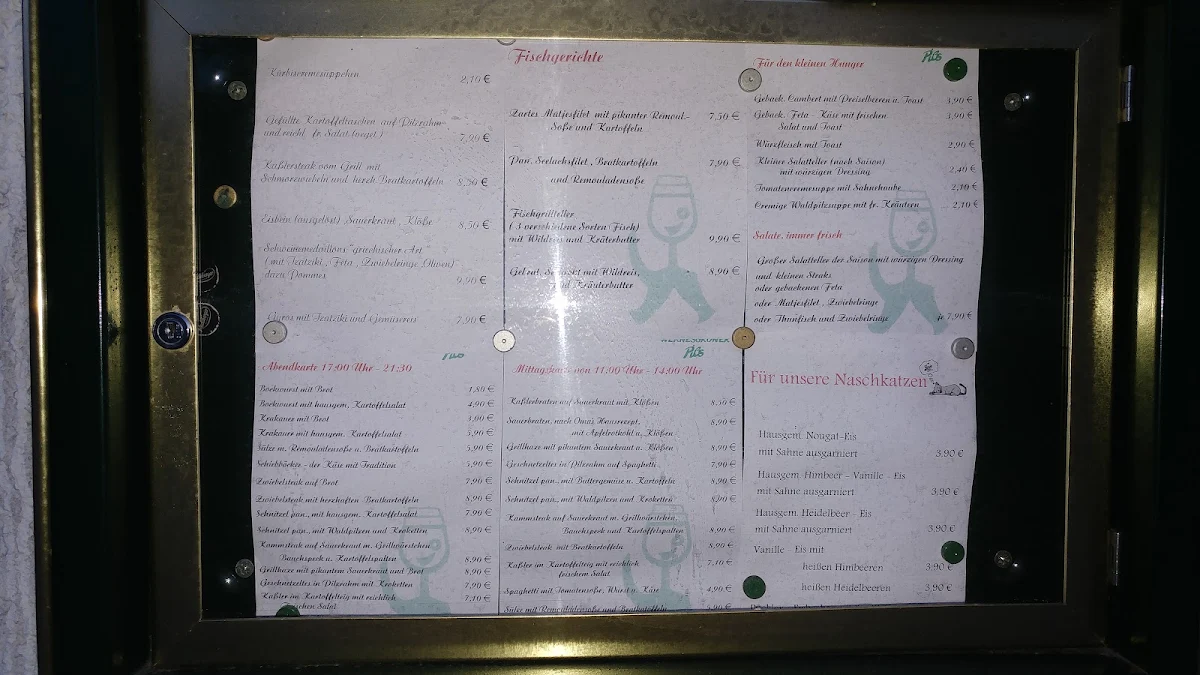 Kürbiscremesüppchen 2,10 €
Gefüllte Kartoffeltaschen auf Pilzrahm
und reichl. fr. Salat 7,90 €
Kaßlersteak vom Grill mit
Schmorzwiebeln und herzh. Bratkartoffeln 8,50 €
Eisbein (ausgelöst) Sauerkraut , Klöße 8,50 €
Schweinemedaillons "griechischer Art"
( mit Tzatziki , Feta , Zwiebelringe, Oliven)
dazu Pommes 9,90 €
Gyros mit Tzatziki und Gemüsereis 7,90 €
Fischgerichte
Zartes Matjesfilet mit pikanter Remoul-
Soße und Kartoffeln 7,50 €
Pan. Seelachsfilet , Bratkartoffeln 7,90 €
und Remouladensoße
Fischgrillteller
( 3 verschiedene Sorten Fisch)
mit Wildreis und Kräuterbutter 9,90 €
mit Wildreis, 8,90 €
und Kräuterbutter
Plüs
Für den kleinen Hunger
Geback. Cambert mit Preiselbeeren u. Toast 3,90 €
Geback. Feta - Käse mit frischen 3,90 €
Salat und Toast
Würzfleisch mit Toast 2,90 €
Kleiner Salatteller (nach Saison)
mit würzigen Dressing 2,40 €
Tomatencremesuppe mit Sahnehaube 2,10 €
Cremige Waldpilzsuppe mit fr. Kräutern 2,10 €
Salate, immer frisch
Großer Salatteller der Saison mit würzigen Dressing
und kleinen Steaks
oder gebackenen Feta
oder Matjesfilet , Zwiebelringe
oder Thunfisch und Zwiebelringe je 7,90 €
Abendkarte 17:00 Uhr - 21:30
Bockwurst mit Brot 1,80 €
Bockwurst mit hausgem. Kartoffelsalat 4,90 €
Krakauer mit Brot 3,00 €
Krakauer mit hausgem. Kartoffelsalat 5,90 €
Sülze m. Remouladensoße u. Bratkartoffeln 5,90 €
Schiebböcker - der Käse mit Tradition 5,90 €
Zwiebelsteak auf Brot 7,90 €
Zwiebelsteak mit herzhaften Bratkartoffeln 8,90 €
Schnitzel pan., mit hausgem. Kartoffelsalat 7,90 €
Schnitzel pan., mit Waldpilzen und Kroketten 8,90 €
Kammsteak auf Sauerkraut m. Grillwürstchen,
Bauchspeck u. Kartoffelspalten 8,90 €
Grillhaxe mit pikantem Sauerkraut und Brot 8,90 €
Geschnetzeltes in Pilzrahm mit Kroketten 7,90 €
Kaßler im Kartoffelteig mit reichlich 7,40 €
frischen Salat
WERNESGRÜNER
Plüs
Mittagskarte von 11:00 Uhr - 14:00 Uhr
Kaßlerbraten auf Sauerkraut mit Klößen 8,50 €
Sauerbraten, nach Omas Hausrezept, 8,90 €
mit Apfelrotkohl u. Klößen
Grillhaxe mit pikantem Sauerkraut u. Klößen 8,90 €
Geschnetzeltes in Pilzrahm auf Spaghetti 7,90 €
Schnitzel pan., mit Buttergemüse u. Kartoffeln 8,90 €
Schnitzel pan., mit Waldpilzen und Kroketten 8,90 €
Kammsteak auf Sauerkraut m. Grillwürstchen,
Bauchspeck und Kartoffelspalten 8,90 €
Zwiebelsteak mit Bratkartoffeln 8,90 €
Kaßler im Kartoffelteig mit reichlich 7,40 €
frischem Salat
Spaghetti mit Tomatensoße, Wurst u. Käse 4,90 €
Sülze mit Remouladensoße und Bratkartoffeln 5,90 €
Für unsere Naschkatzen
Hausgem. Nougat-Eis
mit Sahne ausgarniert 3,90 €
Hausgem. Himbeer - Vanille - Eis
mit Sahne ausgarniert 3,90 €
Hausgem. Heidelbeer - Eis
mit Sahne ausgarniert 3,90 €
Vanille - Eis mit
heißen Himbeeren 3,90 €
heißen Heidelbeeren 3,90 €